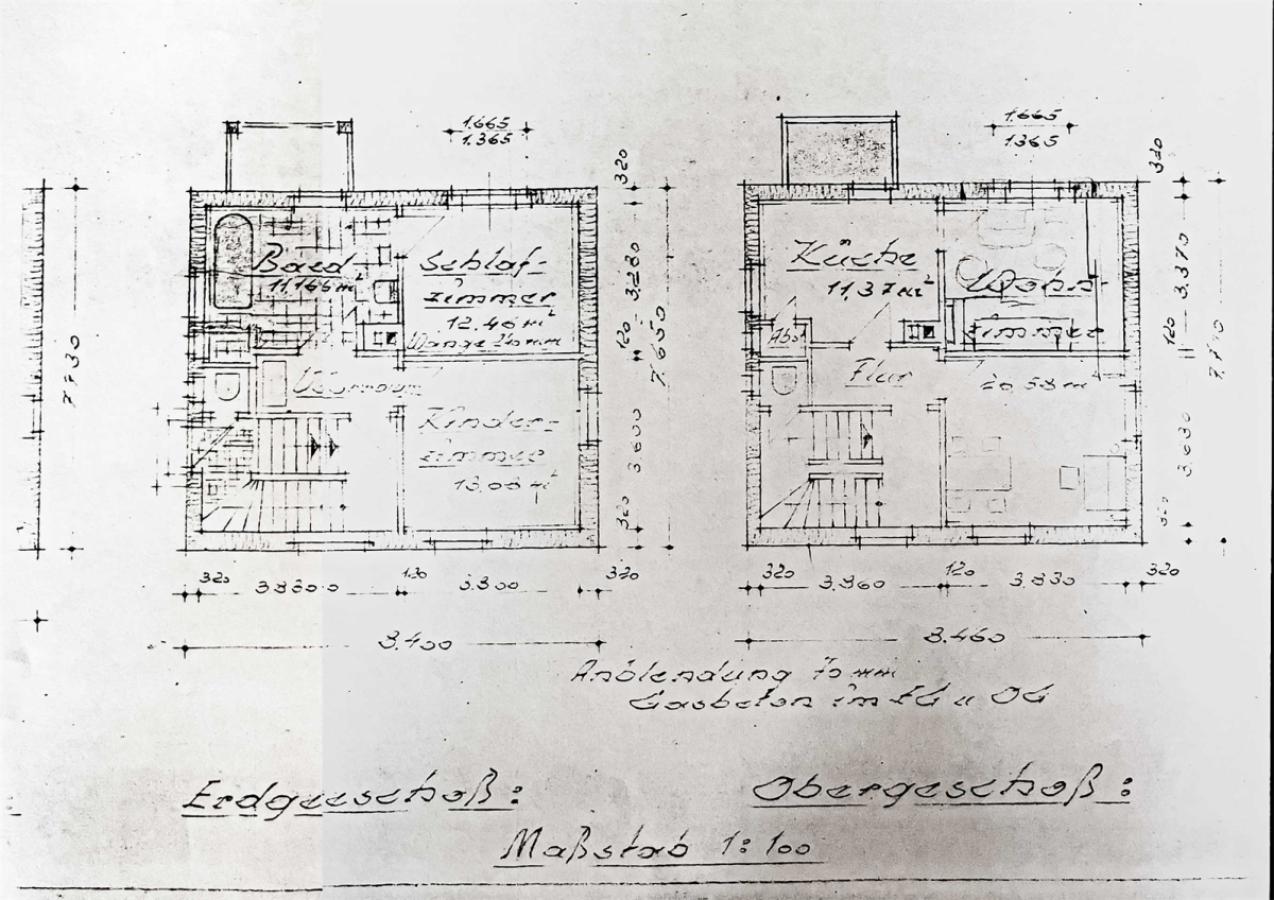 1.665
1.365
320
7.730
Baed
11,166 m²
Schlaf-
zimmer
12.46 m²
Vorraum
Kinder-
zimmer
13,06 m²
3.280
120
7.650
3.600
320
320
120
3.800
320
8.400
1.665
1365
320
Küche
11,37 m²
Wohn-
zimmer
Abst
Flur
20.58 m²
3.370
120
3.630
320
320
3.960
120
3.830
320
8.460
Anblendung 75 mm
Gasbeton im EG u OG
Erdgeeschoß:
Obergeschoß:
Maßstab 1:100